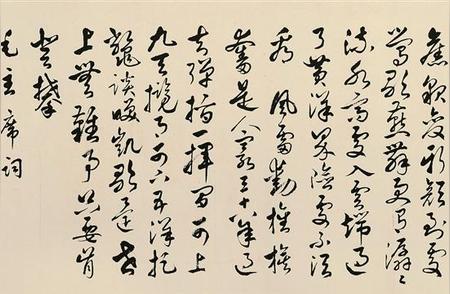 舊貌變新顏到處
鶯歌燕舞更有潺〻
流水高處入雲端過
了黃洋界險處不須
看風雷動旌旗
奮是人寰三十八年過
去彈指一揮間可上
九天攬月可下五洋捉
鱉談笑凱歌還世
上無難事只要肯
登攀
毛主席詞